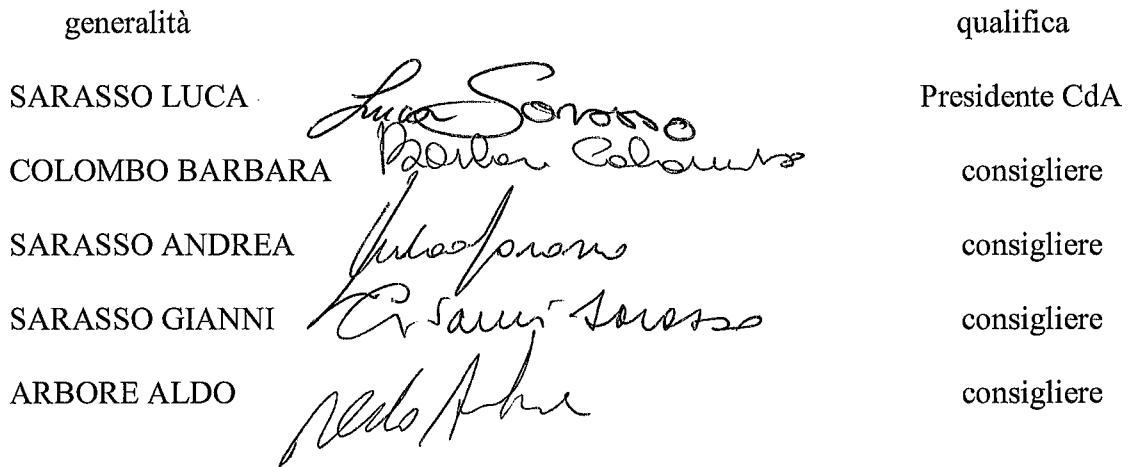 generalità qualifica
SARASSO LUCA Luca Sarasso Presidente CdA
COLOMBO BARBARA Barbara Colombo consigliere
SARASSO ANDREA consigliere
SARASSO GIANNI Gianni Sarasso consigliere
ARBORE ALDO Aldo Arbore consigliere